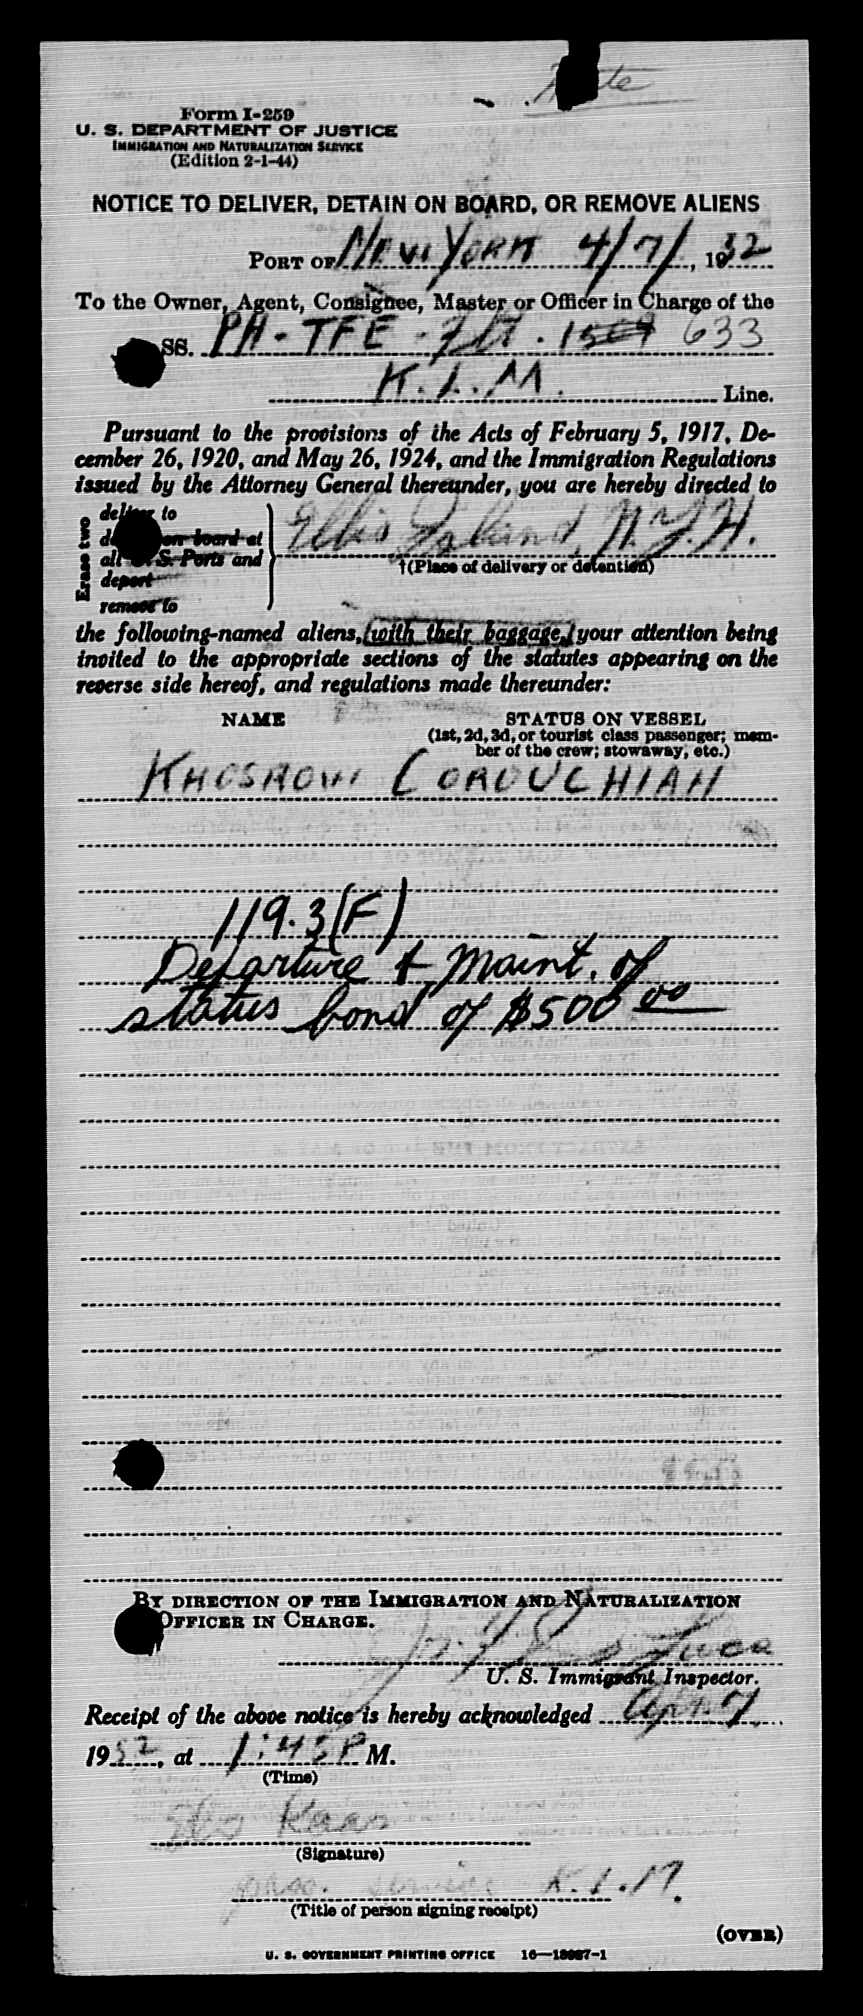 Form I-259
U. S. DEPARTMENT OF JUSTICE
IMMIGRATION AND NATURALIZATION SERVICE
(Edition 2-1-44)
NOTICE TO DELIVER, DETAIN ON BOARD, OR REMOVE ALIENS
PORT OF New York 4/7/, 1952
To the Owner, Agent, Consignee, Master or Officer in Charge of the
SS. PH-TFE - Flt. 633
K.L.M. Line.
Pursuant to the provisions of the Acts of February 5, 1917, De-
cember 26, 1920, and May 26, 1924, and the Immigration Regulations
issued by the Attorney General thereunder, you are hereby directed to
Erase two
deliver to
on board at
all U. S. Ports and
deport
remove to
Ellis Island, N.Y.H.
†(Place of delivery or detention)
the following-named aliens, (with their baggage,) your attention being
invited to the appropriate sections of the statutes appearing on the
reverse side hereof, and regulations made thereunder:
NAME STATUS ON VESSEL
(1st, 2d, 3d, or tourist class passenger; mem-
ber of the crew; stowaway, etc.)
KHOSROW COROUCHIAN
119.3(F)
Departure & Maint. of
status bond of $500 00
BY DIRECTION OF THE IMMIGRATION AND NATURALIZATION
OFFICER IN CHARGE.
U. S. Immigrant Inspector.
Receipt of the above notice is hereby acknowledged Apr 7
1952, at 1:45 P M.
(Time)
Kaas
(Signature)
pass. service K.L.M.
(Title of person signing receipt)
(OVER)
U. S. GOVERNMENT PRINTING OFFICE 16—13927-1